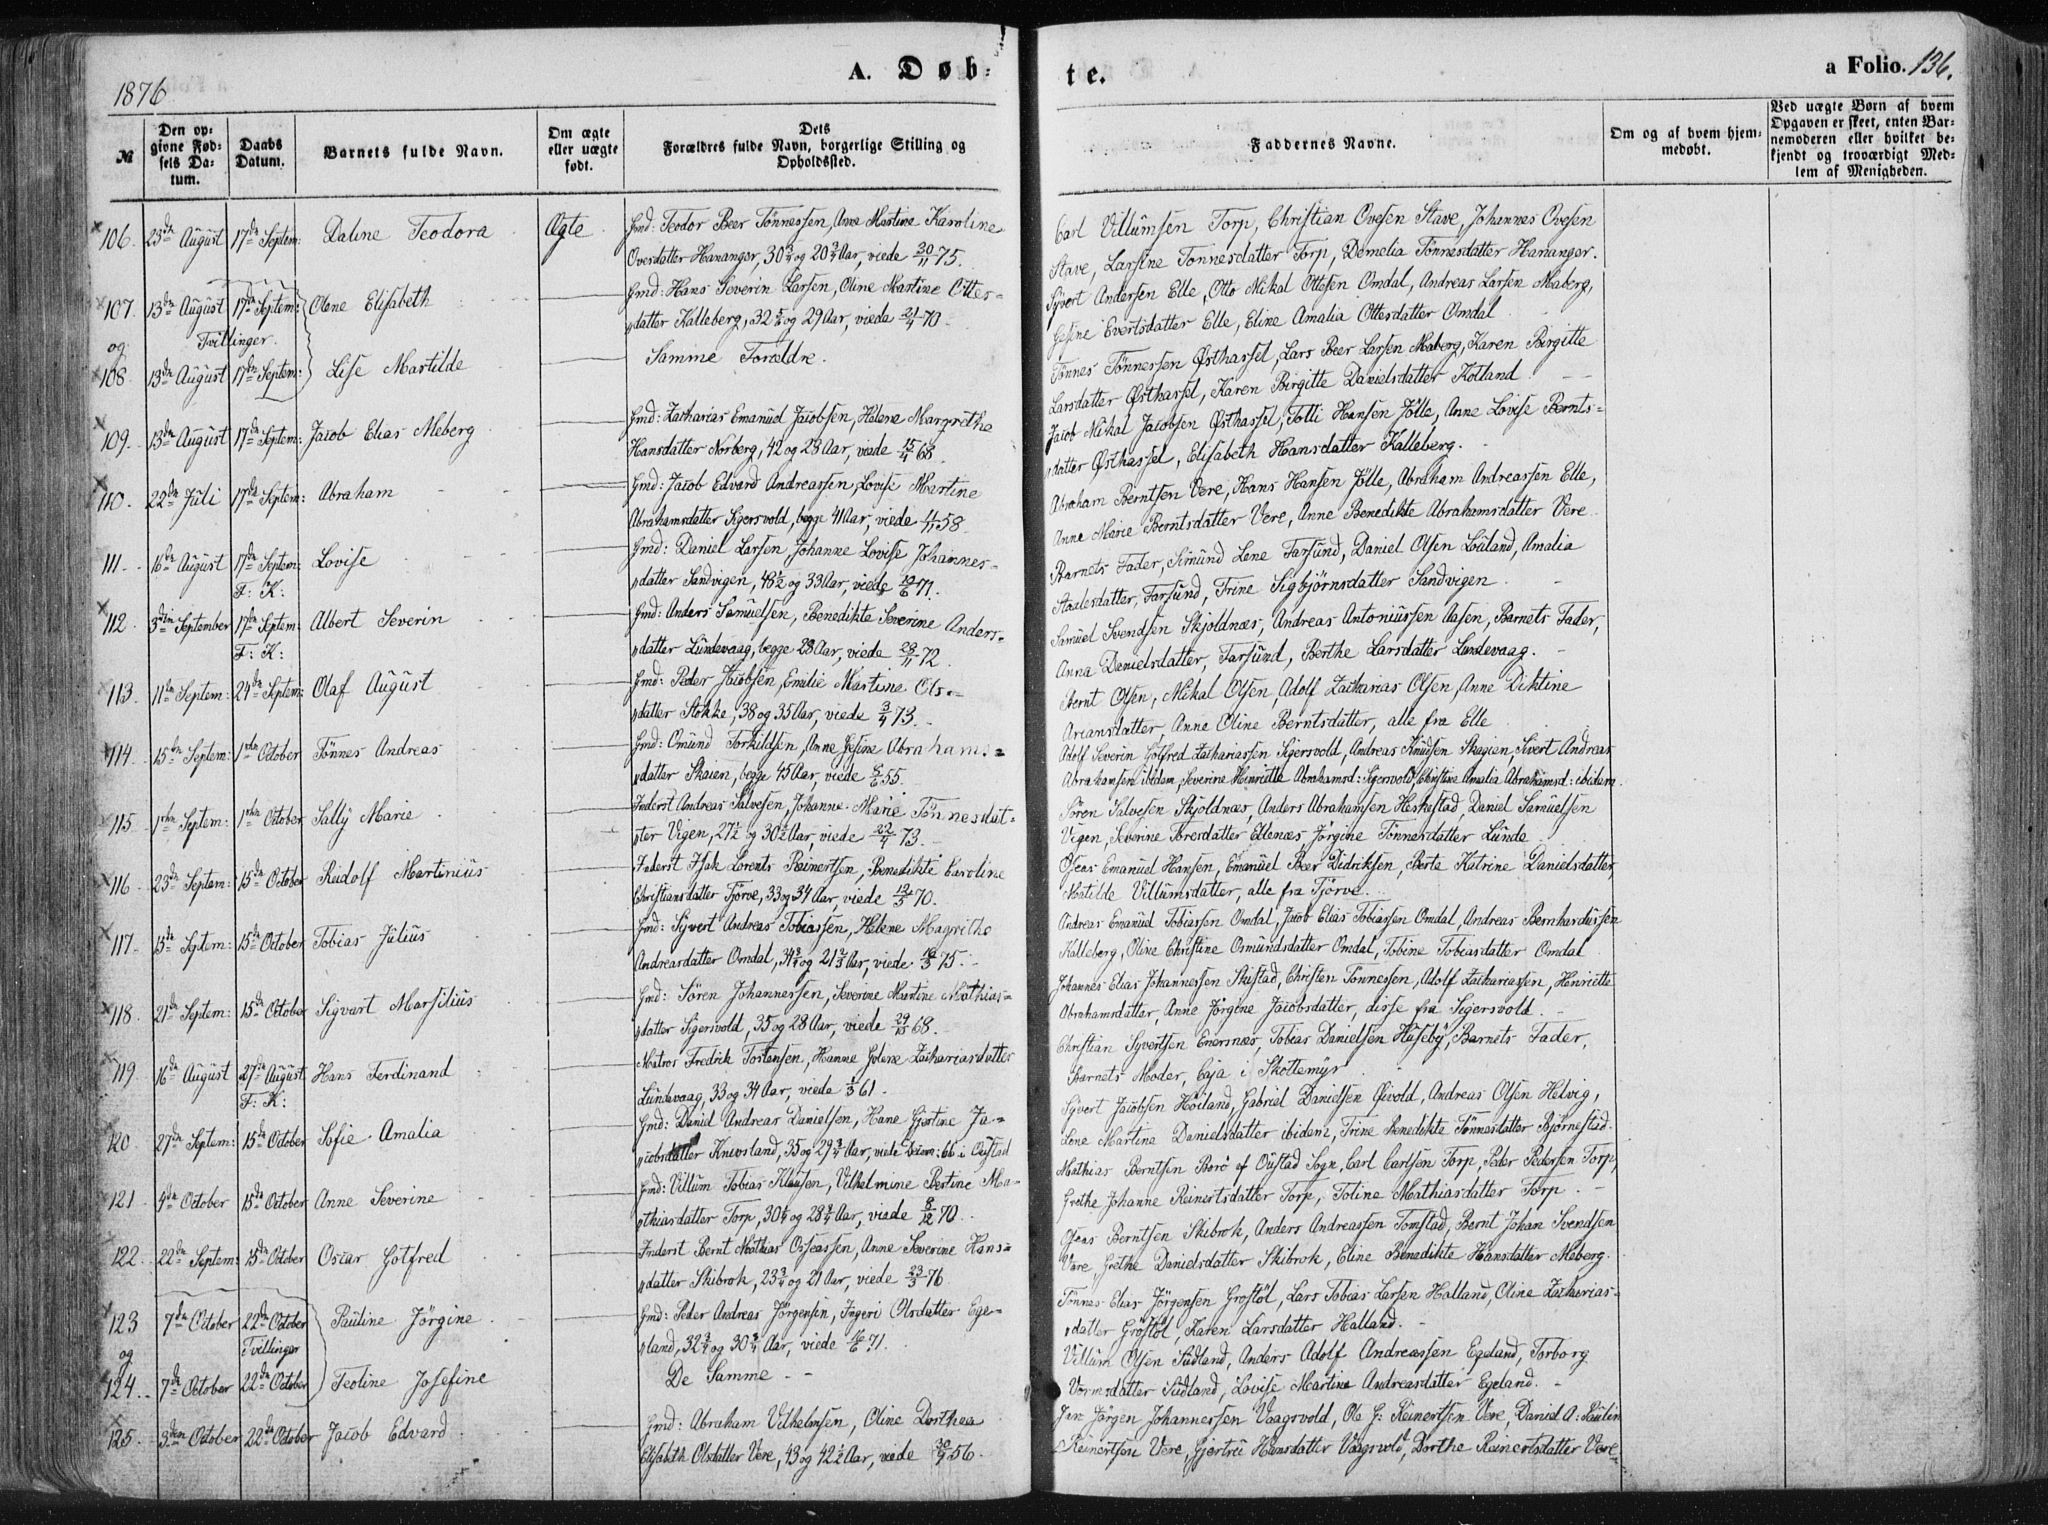 1876
A. Døb-
te.
a Folio. 136.
№
Den op-
givne Fød-
sels Da-
tum.
Daabs
Datum.
Barnets fulde Navn.
Om ægte
eller uægte
født.
Dets
Forældres fulde Navn, borgerlige Stilling og
Opholdssted.
Faddernes Navne.
Om og af hvem hjem-
medøbt.
Ved uægte Børn af hvem
Opgaven er skeet, enten Bar-
nemoderen eller hvilket be-
kjendt og troværdigt Med-
lem af Menigheden.
106. 25de August 17de Septem: Daline Teodora Ægte Gmd: Teodor Beer Tönnessen, Anne Martine Karoline
Ovesdatter Hananger, 30 3/4 og 20 3/4 Aar, viede 30/11 75.
Carl Villumsen Torp, Christian Ovesen Stave, Johannes Ovesen
Stave, Larsine Tonnesdatter Torp, Demelia Tönnesdatter Hananger.
107. 13de August 17de Septem: Olene Elisabeth Gmd: Hans Severin Larsen, Oline Martine Ottes-
datter Kalleberg, 32 og 29 Aar, viede 21/4 70.
Syvert Andersen Elle, Otto Mikal Ottesen Omdal, Andreas Larsen Meberg,
Gesine Evertsdatter Elle, Eline Amalia Ottesdatter Omdal
og Tvillinger.
108. 13de August 17de Septem: Lise Martilde Samme Forældre.
Tönnes Tönnesen Østhassel, Lars Beer Larsen Meberg, Karen Birgitte
Larsdatter Østhassel, Karen Birgitte Danielsdatter Kolland
109. 13de August 17de Septem: Jacob Elias Meberg Gmd: Zacharias Emanuel Jacobsen, Helene Margrethe
Hansdatter Norberg, 42 og 28 Aar, viede 15/4 68.
Jacob Mikal Jacobsen Østhassel, Tolli Hansen Jölle, Anne Lovise Bernts-
datter Østhassel, Elisabeth Hansdatter Kalleberg.
110. 22de Juli 17de Septem: Abraham Gmd: Jacob Edvard Andreassen, Lovise Martine
Abrahamsdatter Sigersvold, begge 41 Aar, viede 4/11 58
Abraham Berntsen Vere, Hans Hansen Jölle, Abraham Andreassen Elle,
Anne Marie Berntsdatter Vere, Anne Benedikte Abrahamsdatter Vere
111. 16de August 17de Septem: Lovise Gmd: Daniel Larsen Johanne Lovise Johannes-
F: K: datter Sandvigen, 48 1/2 og 33 Aar, viede 19/6 71.
Barnets Fader, Simund Lene Farsund, Daniel Olsen Loiland, Amalia
Staalesdatter, Farsund, Trine Sigbjörnsdatter Sandvigen
112. 3die September 17de Septem: Albert Severin Gmd: Anders Samuelsen, Benedikte Severine Anders-
F: K: datter Lundevaag, begge 28 Aar, viede 28/11 72.
Samuel Svendsen Skjoldnæs, Andreas Antoniussen Aasen, Barnets Fader,
Anna Danielsdatter, Farsund, Berthe Larsdatter Lundevaag.
113. 11de Septem: 24de Septem: Olaf August Gmd: Peder Jacobsen, Emilie Martine Ols-
datter Stokke, 38 og 35 Aar, viede 3/4 73.
Bernt Olsen, Mikal Olsen, Adolf Zacharias Olsen, Anne Diktine
Ariansdatter, Anne Oline Berntsdatter, alle fra Elle
114. 15de Septem: 1ste October Tönnes Andreas Gmd: Omund Torkildsen, Anne Gesine Abrahams-
datter Skaien, begge 45 Aar, viede 55.
Adolf Severin Gotfred Zachariassen Sigersvold, Andreas Knudsen Skagien, Sivert Andreas
Abrahamsen ibidem, Severine Henriette Abrahamsd: Sigersvold, Christine Amalia Abrahamsd: ibidem.
115. 1ste Septem: 1ste October Sally Marie Inderst Andreas Salvesen, Johanne Marie Tönnesdat-
ter Vigen, 27 1/2 og 30 1/2 Aar, viede 22/4 73.
Sören Salvesen Skjoldnæs, Anders Abrahamsen Heskestad, Daniel Samuelsen
Vigen, Severine Toresdatter Ellenæs, Jörgine Tönnesdatter Lunde
116. 23de Septem: 15de October Rudolf Martinius Inderst Isak Lorents Reinertsen, Benedikte Caroline
Christiansdatter Tjörve, 33 og 34 Aar, viede 13/5 70.
Oseas Emanuel Hansen, Emanuel Beer Didriksen, Berte Katrine Danielsdatter,
Matilde Villumsdatter, alle fra Tjörve.
117. 15de Septem: 15de October Tobias Julius Gmd: Syvert Andreas Tobiassen, Helene Magrithe
Andreasdatter Omdal, 34 3/4 og 21 2/3 Aar, viede 18/3 75.
Andreas Emanuel Tobiassen Omdal, Jacob Elias Tobiassen Omdal, Andreas Bernhardussen
Kalleberg, Oline Christine Osmundsdatter Omdal, Tobine Tobiasdatter Omdal
118. 21de Septem: 15de October Sigvart Marsilius Gmd: Sören Johannessen, Severine Martine Mathias-
datter Sigersvold, 35 og 28 Aar, viede 29/10 68.
Johannes Elias Johannessen Skustad, Christen Tönnessen, Adolf Zachariassen, Henriette
Abrahamsdatter, Anne Jörgine Jacobsdatter, disse fra Sigersvold.
119. 16de August 27de August Hans Ferdinand Matros Fredrik Torstensen, Hanne Golene Zachariasdatter
F: K: Lundevaag, 33 og 34 Aar, viede 1/3 61.
Christian Syvertsen Enersnæs, Tobias Danielsen Huseby, Barnets Fader,
Barnets Moder, Caja i Skottemyr
120. 27de Septem: 15de October Sofie Amalia Gmd: Daniel Andreas Danielsen, Hane Gjertine Ja-
cobsdatter Knivsland, 35 og 29 3/4 Aar, viede Decem: 66 i Oustad
Syvert Jacobsen Höiland, Gabriel Danielsen Qvivold, Andreas Olsen Helvig,
Lene Martine Danielsdatter ibidem, Trine Benedikte Tönnesdatter Bjørnestad
121. 4de October 15de October Anne Severine Gmd: Villum Tobias Klausen, Vilhelmine Bertine Ma-
thiasdatter Torp, 30 1/4 og 28 3/4 Aar, viede 8/12 70.
Mathias Berntsen Borö af Oustad Sogn, Carl Carlsen Torp, Peder Pedersen Torp,
Grethe Johanne Reinertsdatter Torp, Toline Mathiasdatter Torp.
122. 22de Septem: 15de October Oscar Gotfred Inderst Bernt Mathias Osseassen, Anne Severine Hans-
datter Skibrok, 23 3/4 og 21 Aar, viede 23/3 76.
Oseas Berntsen Skibrok, Anders Andreassen Tomstad, Bernt Johan Svendsen
Vare, Grethe Danielsdatter Skibrok, Eline Benedikte Hansdatter Meberg.
123 7de October 22de October Pauline Jörgine Gmd: Peder Andreas Jörgensen, Ingeri Olsdatter Ege-
og Tvillinger land, 32 3/4 og 30 3/4 Aar, viede 16/6 71.
Tönnes Elias Jörgensen Grostöl, Lars Tobias Larsen Halland, Oline Zacharias-
datter Gröstöl, Karen Larsdatter Halland.
124. 7de October 22de October Teoline Josefine De Samme
Villum Olsen Sudland, Anders Adolf Andreassen Egeland, Torborg
Vormsdatter Sudland, Lovise Martine Andreasdatter Egeland.
125. 3die October 22de October Jacob Edvard Gmd: Abraham Vilhelmsen, Oline Dorthea
Elisabeth Olsdatter Vere, 43 og 42 1/2 Aar, viede 56.
Jan Jörgen Johannessen Vaagsvold, Ole G: Reinertsen Vere, Daniel A: Paulin
Reinertsen Vere, Gjertru Hansdatter Vaagsvold, Dorthe Reinertsdatter Vere